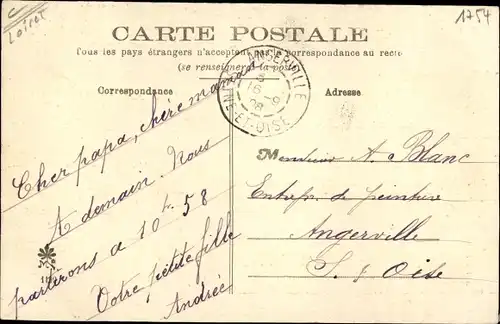 Loiret
1754
CARTE POSTALE
Tous les pays étrangers n'acceptent pas la correspondance au recto
(se renseigner à la poste)
Correspondance
Adresse
ANGERVILLE
6
SEINE-ET-OISE
Cher papa, chère maman
A demain. Nous
partirons a 10h. 58
Votre petite fille
Andrée
Monsieur A. Blanc
Entrepr. de peinture
Angerville
S. & Oise